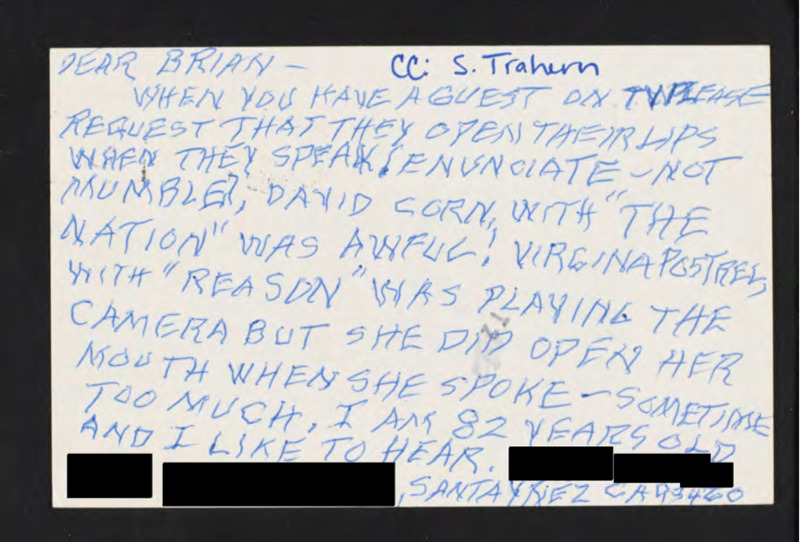 DEAR BRIAN — CC: S. Trahern
WHEN YOU HAVE A GUEST ON TV PLEASE
REQUEST THAT THEY OPEN THEIR LIPS
WHEN THEY SPEAK! ENUNCIATE - NOT
MUMBLE, DAVID CORN, WITH "THE
NATION" WAS AWFUL! VIRGINA POSTREL,
WITH "REASON" WAS PLAYING THE
CAMERA BUT SHE DID OPEN HER
MOUTH WHEN SHE SPOKE - SOMETIME
TOO MUCH, I AM 82 YEARS OLD
AND I LIKE TO HEAR.
, SANTA YNEZ CA 93460